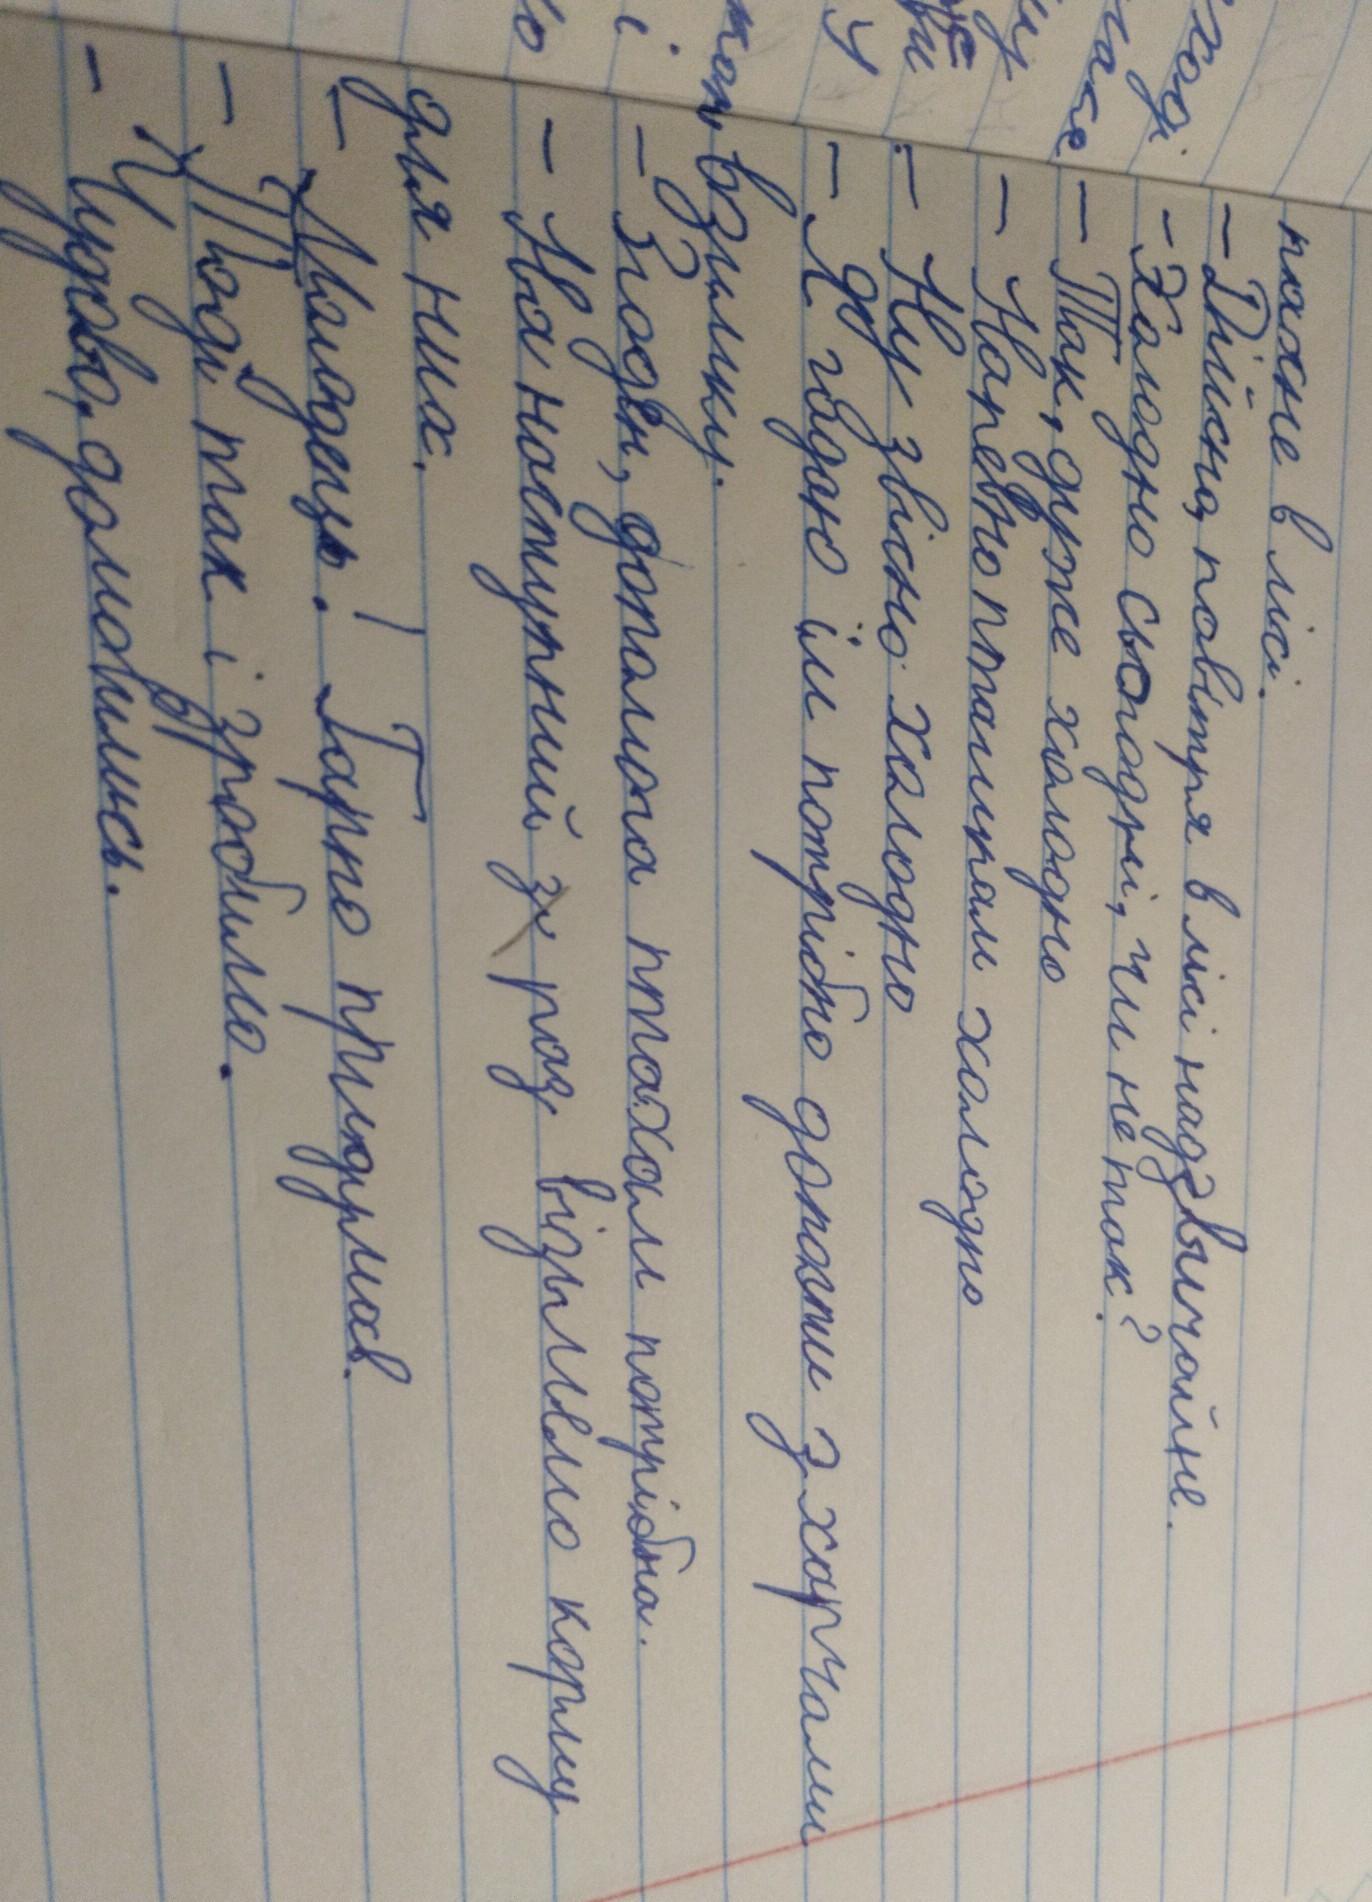 пахне в лісі.
- Дійсно, повітря в лісі надзвичайне.
- Холодно сьогодні, чи не так?
- Так, дуже холодно
- Напевно пташкам холодно
- Ну звісно холодно
- Я гадаю їм потрібно допомти з харчами
взимку.
- Згоден, допомога птахам потрібна.
- На наступний раз візьмемо корму
для них.
- Молодець! Гарно придумав.
- Тоді так і зробимо.
- Чудово, домовились.